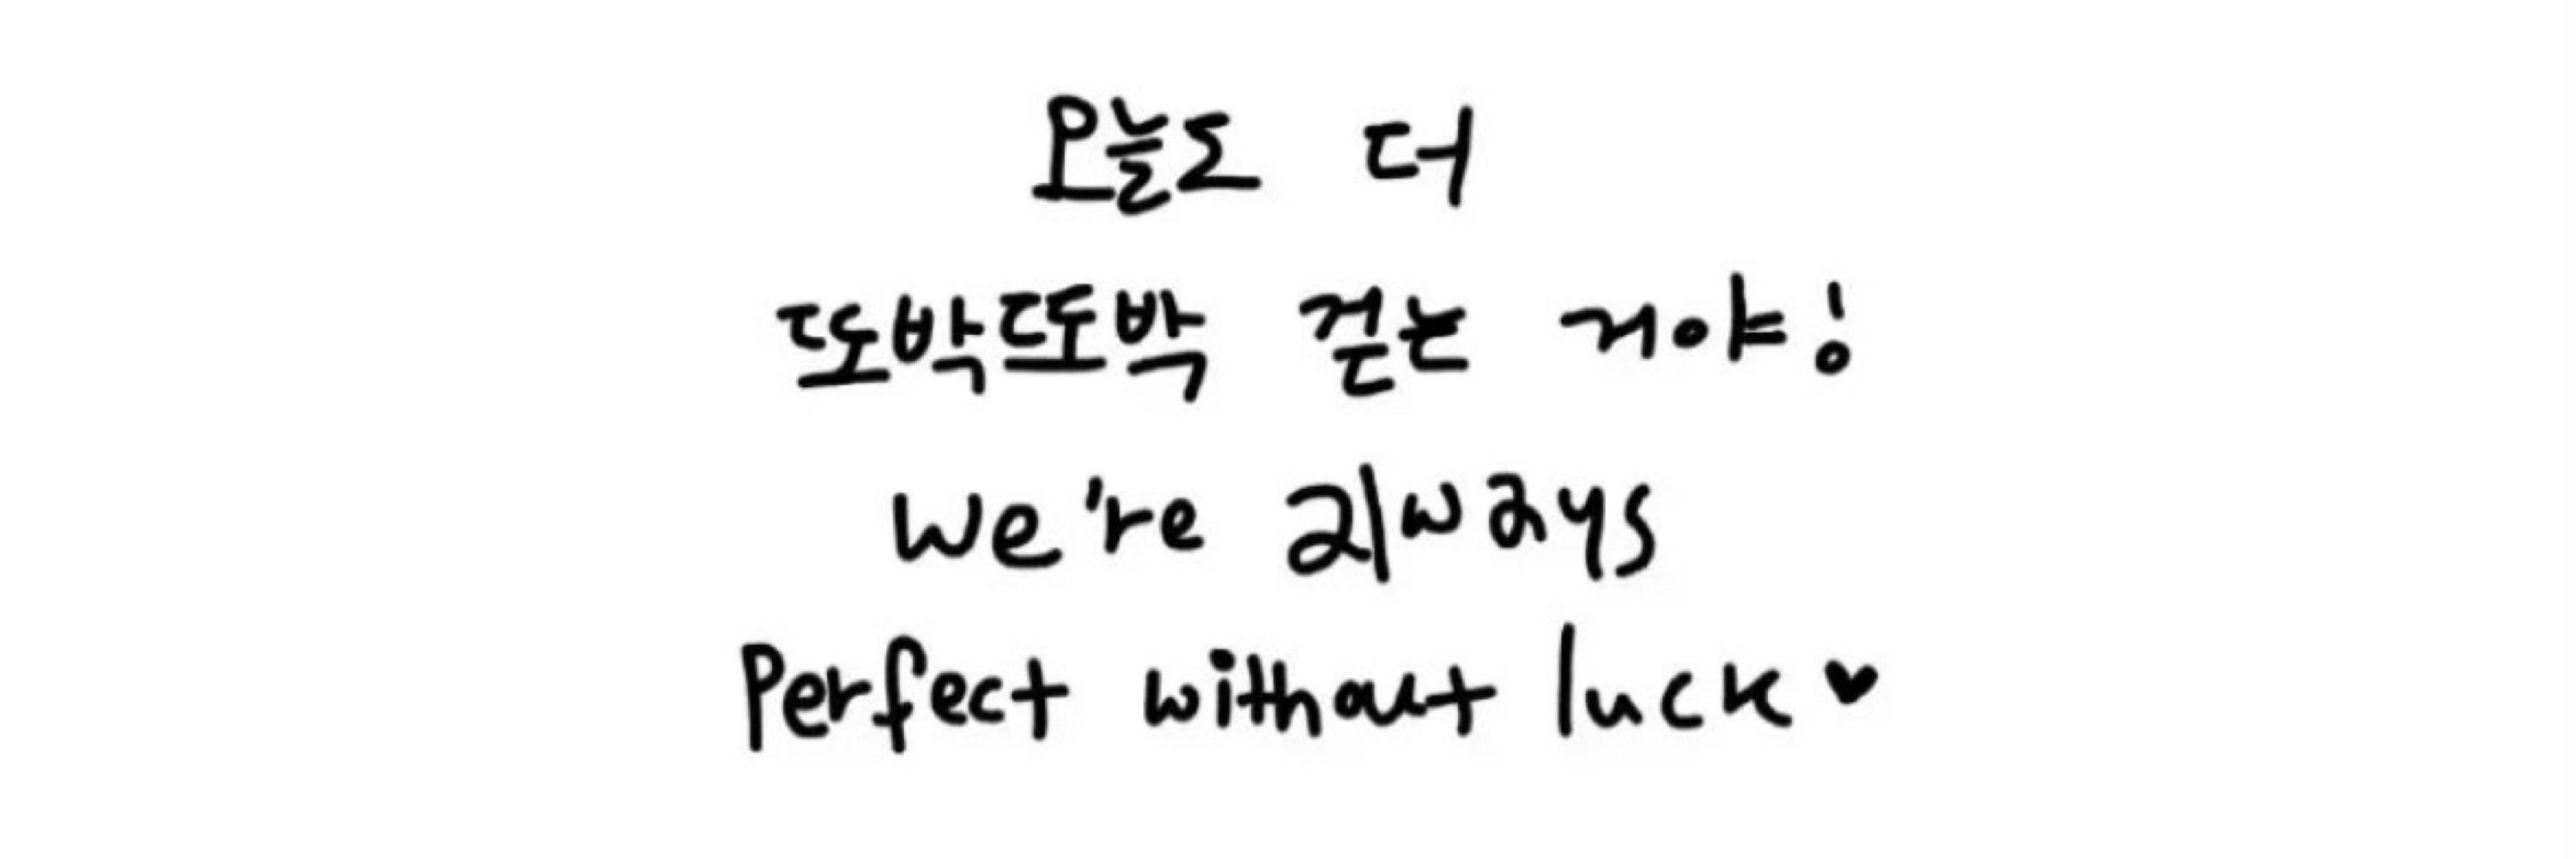 오늘도 더
또박또박 걷는 거야!
we're always
Perfect without luck♥